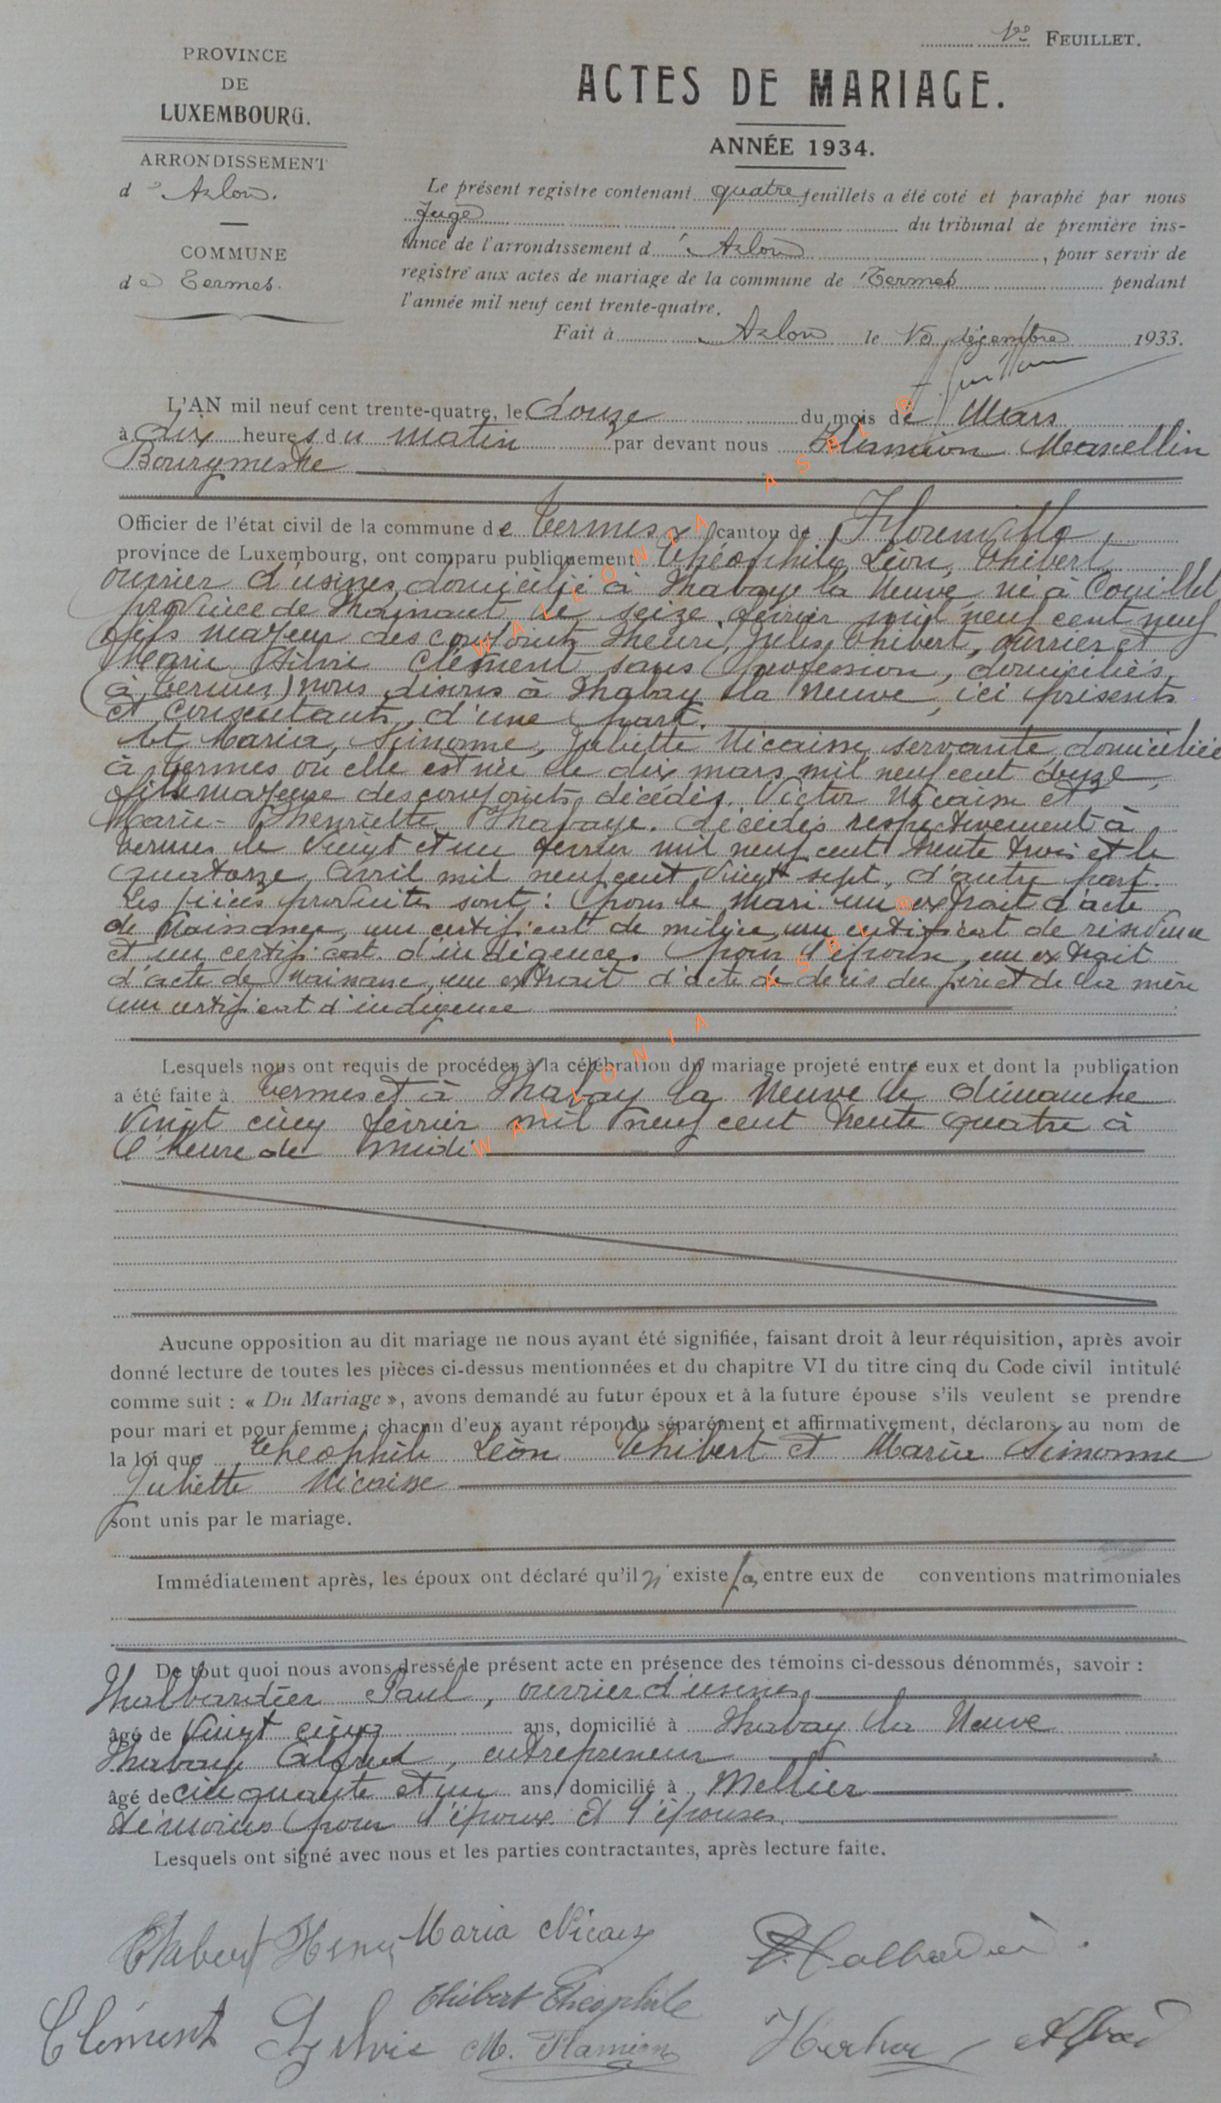 1er FEUILLET.
PROVINCE
DE
LUXEMBOURG.
ARRONDISSEMENT
d'Arlon.
COMMUNE
de Termes.
ACTES DE MARIAGE.
ANNÉE 1934.
Le présent registre contenant quatre feuillets a été coté et paraphé par nous
Juge du tribunal de première ins-
tance de l'arrondissement d'Arlon, pour servir de
registre aux actes de mariage de la commune de Termes pendant
l'année mil neuf cent trente-quatre.
Fait à Arlon le décembre 1933.
L'AN mil neuf cent trente-quatre, le douze du mois de Mars
à dix heures du matin par devant nous Flamion Marcellin
Bourgmestre
Officier de l'état civil de la commune de Termes canton de Florenville,
province de Luxembourg, ont comparu publiquement Théophile, Léon, Thibert,
ouvrier d'usines, domicilié à Habay la Neuve, né à Couillet
province de Hainaut le seize février mil neuf cent neuf
fils majeur des conjoints Henri, Jules, Thibert, ouvrier et
Marie Silvie Clément sans profession, domiciliés
(à Termes) nous disons à Habay la Neuve, ici présents
et consentants, d'une part.
Et Maria, Simonne, Juliette Nicaise, servante, domiciliée
à Termes où elle est née le dix mars mil neuf cent douze,
fille majeure des conjoints décédés, Victor Nicaise et
Marie-Henriette Habaye. décédés respectivement à
Termes le vingt et un février mil neuf cent trente trois et le
quatorze avril mil neuf cent vingt sept, d'autre part.
Les pièces produites sont: pour le mari un extrait d'acte
de Naissance, un certificat de milice, un certificat de résidence
et un certificat d'indigence. pour l'épouse, un extrait
d'acte de Naissance, un extrait d'acte de décès du père et de la mère
un certificat d'indigence
Lesquels nous ont requis de procéder à la célébration du mariage projeté entre eux et dont la publication
a été faite à Termes et à Habay la Neuve le dimanche
vingt cinq février mil neuf cent trente quatre à
l'heure de midi
Aucune opposition au dit mariage ne nous ayant été signifiée, faisant droit à leur réquisition, après avoir
donné lecture de toutes les pièces ci-dessus mentionnées et du chapitre VI du titre cinq du Code civil intitulé
comme suit : « Du Mariage », avons demandé au futur époux et à la future épouse s'ils veulent se prendre
pour mari et pour femme ; chacun d'eux ayant répondu séparément et affirmativement, déclarons au nom de
la loi que Théophile Léon Thibert et Maria Simonne
Juliette Nicaise
sont unis par le mariage.
Immédiatement après, les époux ont déclaré qu'il n'existe pas entre eux de conventions matrimoniales
De tout quoi nous avons dressé le présent acte en présence des témoins ci-dessous dénommés, savoir :
Halbardier Paul, ouvrier d'usines
âgé de vingt cinq ans, domicilié à Habay la Neuve
Habay Alfred, entrepreneur
âgé de cinquante et un ans, domicilié à Mellier
témoins pour l'époux et l'épouse.
Lesquels ont signé avec nous et les parties contractantes, après lecture faite.
Thibert Henri Maria Nicaise P. Halbardier
Thibert Théophile
Clément Sylvie M. Flamion Alfred
WALLONIA ASBL ®
WALLONIA ASBL ®